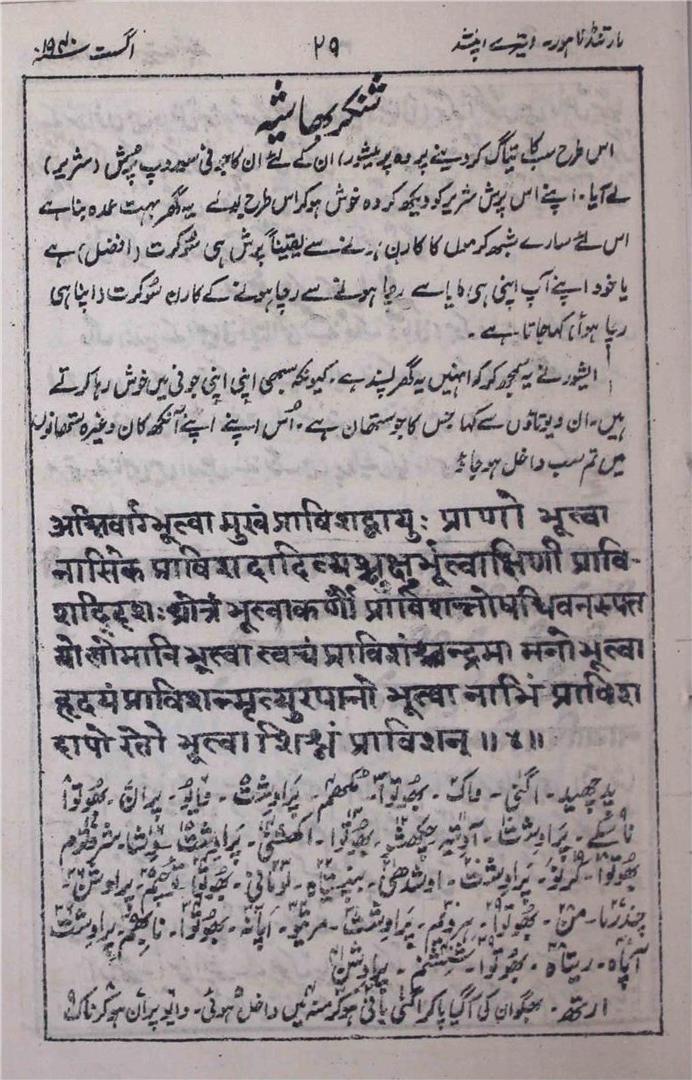 مارتنڈ لاہور۔ ایترے اپنشد ۲۹ اگست ۱۹۴۰
شنکر بھاشیہ
اس طرح سب کا تیاگ کر دینے پر وہ پرمیشور) ان کے لئے ان کا جونی سوروپ پُرش (شریر)
لے آیا۔ اپنے اس پرش شریر کو دیکھ کر وہ خوش ہو کر اس طرح بولے یہ گھر بہت عمدہ بنا ہے
اس لئے سارے شبھ کرموں کا کارن ہونے سے یقیناً پرش ہی سُوکرت (افضل) ہے
یا خود اپنے آپ اپنی ہی مایا سے رچا ہونے سے رچا ہونے کے کارن سُوکرت (اپنا ہی
رچا ہوا) کہا جاتا ہے۔
ایشور نے یہ سمجھ کر کہ انہیں یہ گھر پسند ہے۔ کیونکہ سبھی اپنی اپنی جونی میں خوش رہا کرتے
ہیں۔ ان دیوتاؤں سے کہا جس کا جو ستھان ہے۔ اُس اپنے اپنے آنکھ کان وغیرہ ستھانوں
میں تم سب داخل ہو جاؤ
अग्निर्वाग्भूत्वा मुखं प्राविशद्वायुः प्राणो भूत्वा
नासिके प्राविशदादित्यश्चक्षुर्भूत्वाक्षिणी प्रावि-
शद्दिशः श्रोत्रं भूत्वा कर्णौ प्राविशन्नोषधिवनस्पत
यो लोमानि भूत्वा त्वचं प्राविशंश्चन्द्रमा मनो भूत्वा
हृदयं प्राविशन्मृत्युरपानो भूत्वा नाभिं प्राविश
दापो रेतो भूत्वा शिश्नं प्राविशन् ॥४॥
پدچھید۔ اگنی۔ واک۔ بھوتوا۔ مکھم۔ پراوِشت۔ وایو۔ پران۔ بھوتوا
ناسکے۔ پراوِشت۔ آدتیہ۔ چکھشو۔ بھوتوا۔ اکھشنی۔ پراوِشت۔ دِشا۔ شروترم
بھوتوا۔ کرنو۔ پراوِشن۔ اوشدھی۔ بنسپتیاہ۔ لومانی۔ بھوتوا۔ توچم۔ پراوِشن۔
چندرما۔ من۔ بھوتوا۔ ہردیم۔ پراوِشت۔ مرتیو۔ اپانہ۔ بھوتوا۔ نابھم۔ پراوِشت
آپاہ۔ ریتاہ۔ بھوتوا۔ ششنم۔ پراوِشن
ارتھ۔ بھگوان کی آگیا پا کر اگنی بانی ہو کر منہ میں داخل ہوئی۔ وایو پران ہو کر ناک